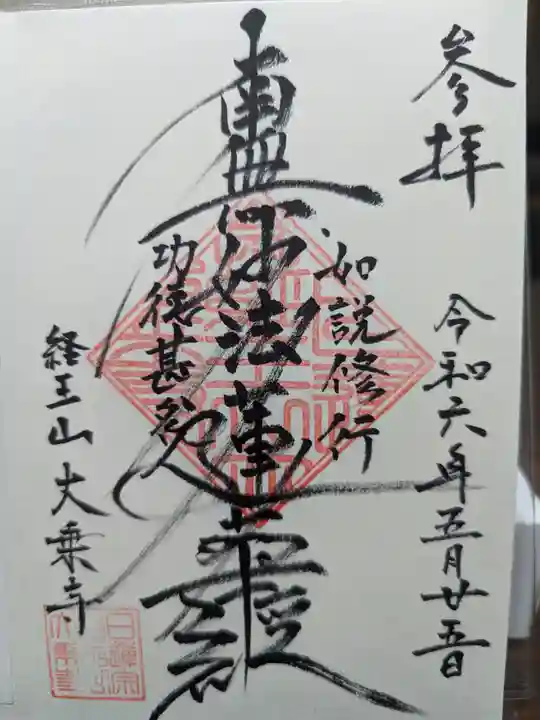 参拝
令和六年五月廿五日
如説修行
南無妙法蓮華経
功徳甚多
経王山 大乗寺
日蓮宗